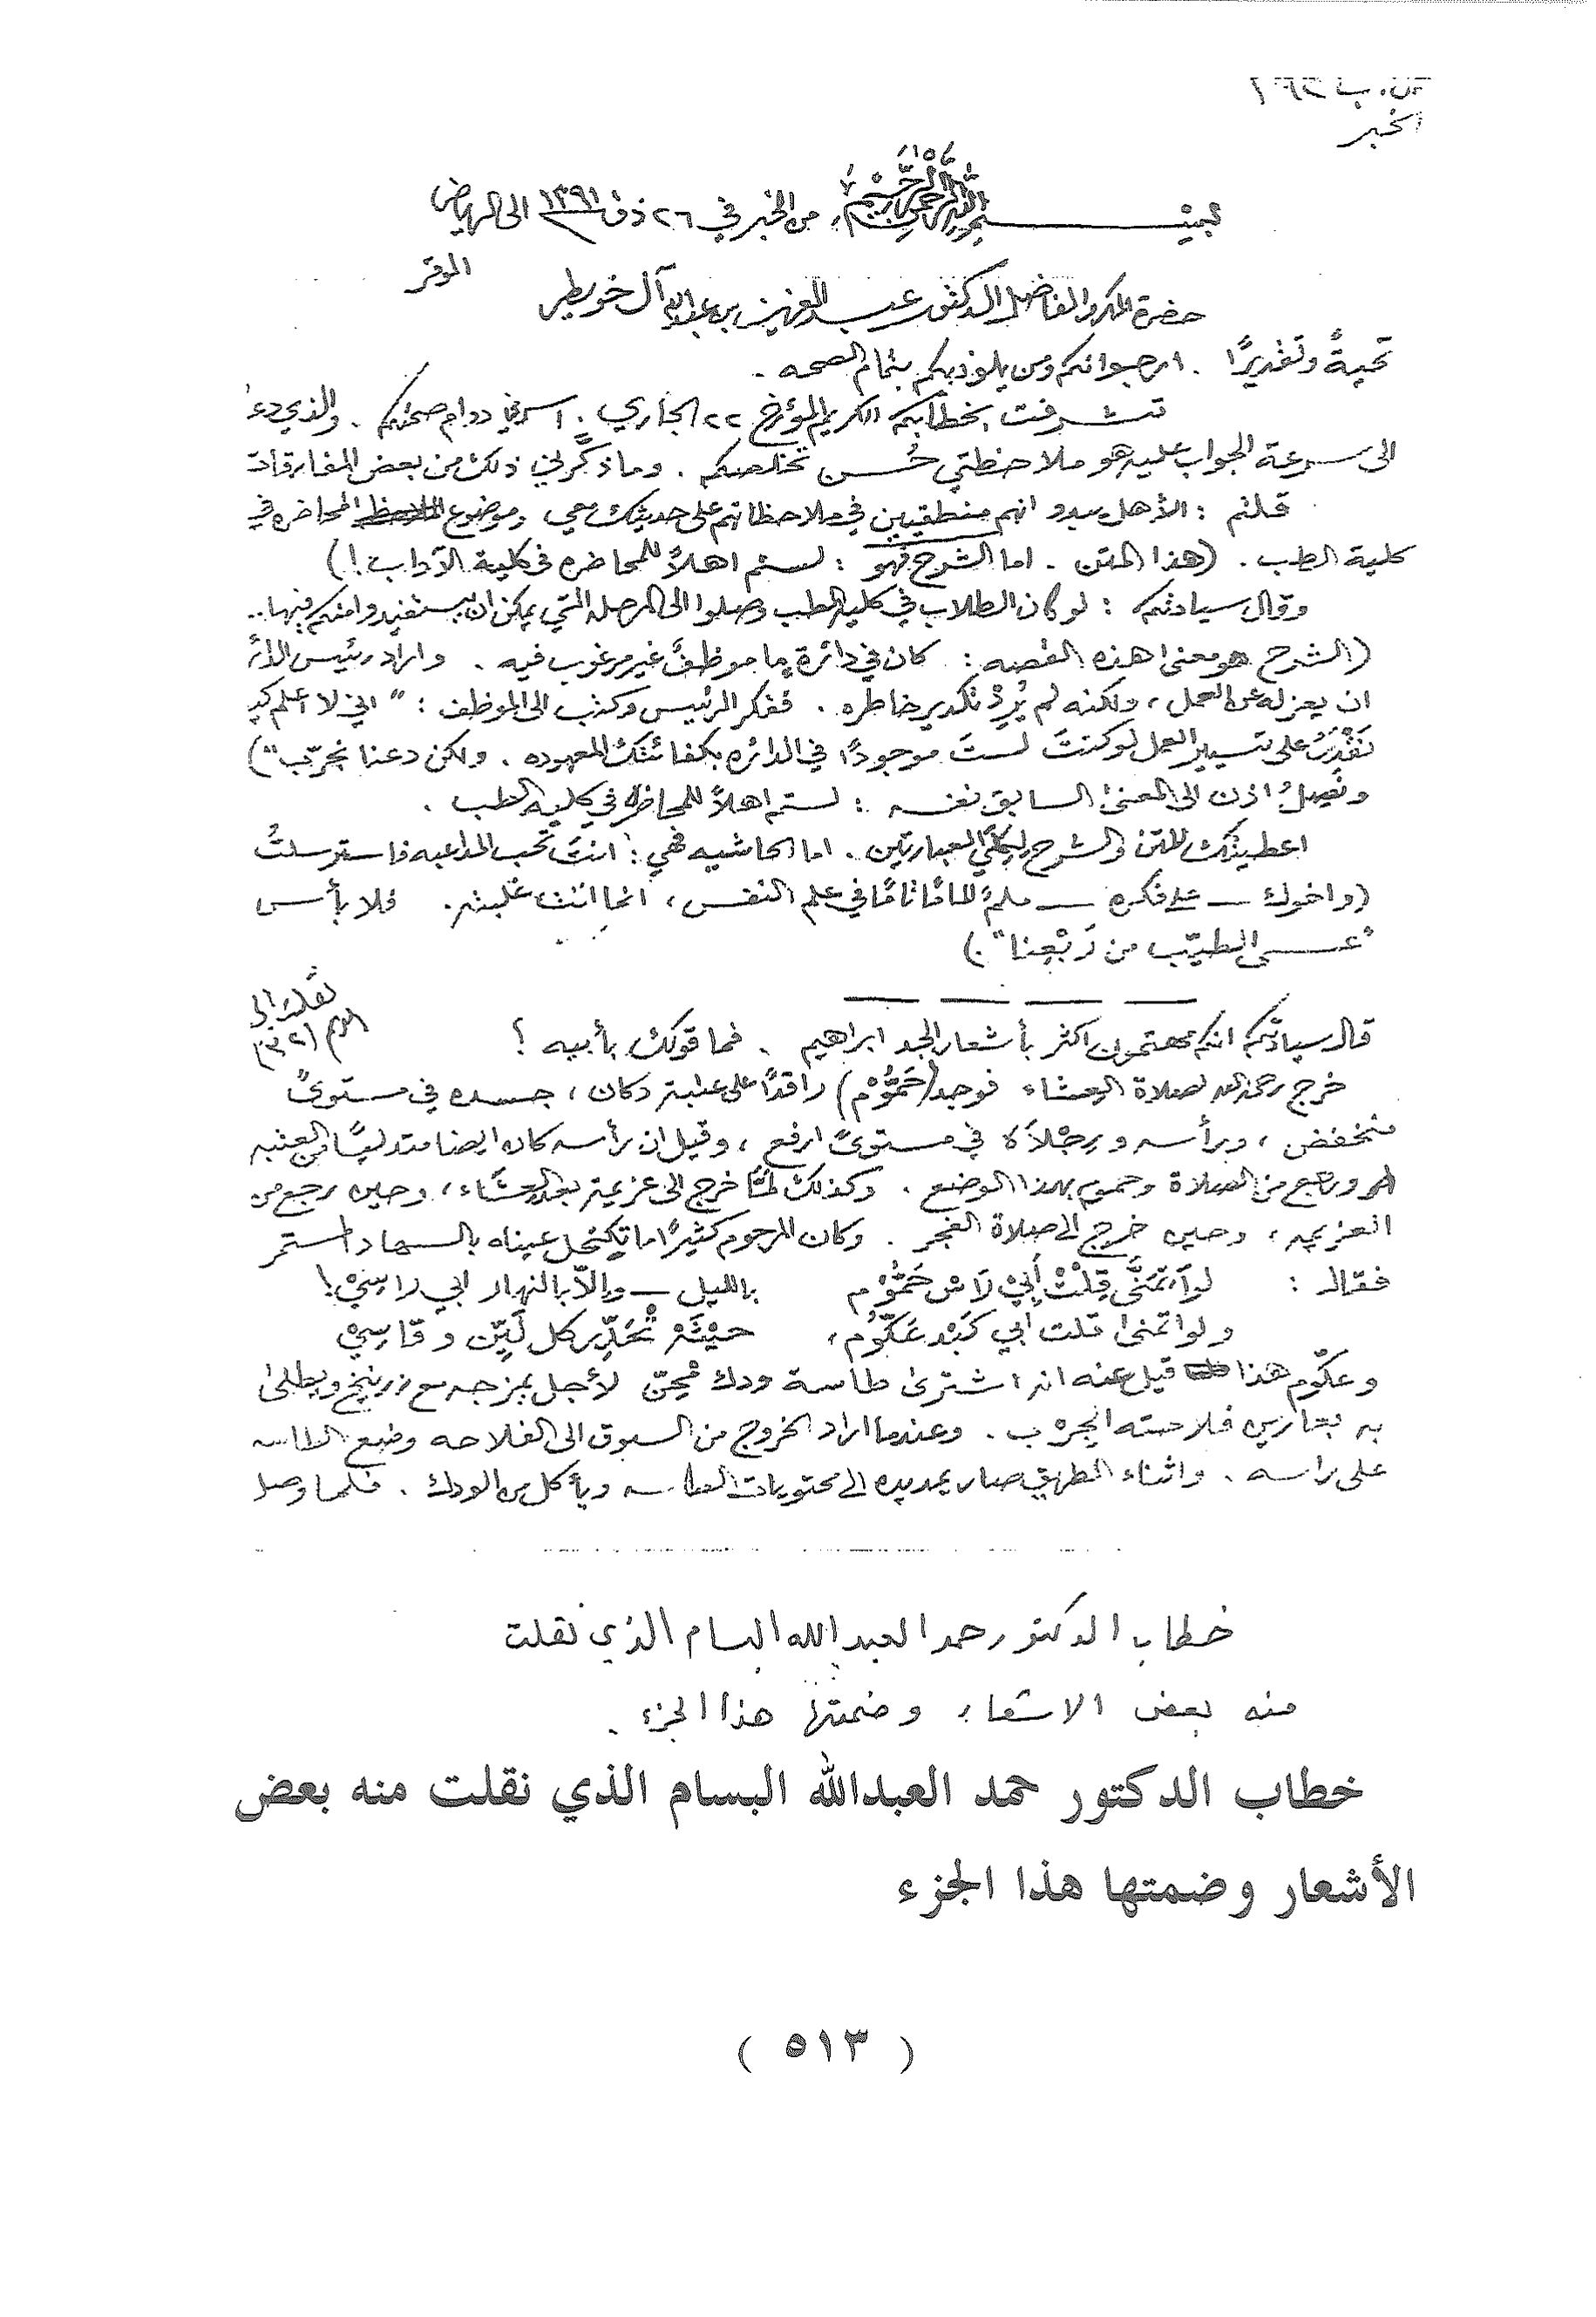 الخبر
بسم الله الرحمن الرحيم من الخبر في ٢٦ ذق ١٣٩١ الى الرياض
حضرة المكرم الفاضل الدكتور عبدالعزيز بن عبدالله آل خويطر الموقر
تحيةً وتقديرًا . ارجو انكم ومن يلوذ بكم بتمام الصحه .
تشرفت بخطابكم الكريم المؤرخ ٢٢ الجاري . اسرني دوام صحتكم . والذي دعا
الى سرعة الجواب عليه هو ملاحظتي حُسن تخلصكم . وما ذكَّرني ذلك من بعض المفارقات
قلتم : الأهل يبدو انهم منطقيين في ملاحظاتهم على حديثك معي وموضوع المحاضره في
كلية الطب . (هذا المتن . اما الشرح فهو : لستم اهلاً للمحاضره في كلية الآداب !)
وقال سيادتكم : لو كان الطلاب في كلية الطب وصلوا الى المرحله التي يمكن ان يستفيدوا منكم فيها ..
(الشرح هو معنى هذه القصه : كان في دائرةٍ ما موظفٌ غير مرغوب فيه . واراد رئيس الدائر
ان يعزله عن العمل ، ولكنه لم يُرِدْ تكدير خاطره . ففكر الرئيس وكتب الى الموظف : " اني لا اعلم كيف
نَقْدِرُ على تسيير العمل لو كنتَ لستَ موجودًا في الدائره بكفائتك المعهوده . ولكن دعنا نجرّب ")
ونَصِلُ اذن الى المعنى السابق نفسه : لستم اهلاً للمحاضره في كلية الطب .
اعطيتك المتن والشرح لِكِلتَي العبارتين . اما الحاشيه فهي : انتَ تحب المداعبه فاسترسلتُ
(واخوك — على فكره — ملمٌ المامًا تامًا في علم النفس ، انما انت غلبتنـ . فلا بأس
"عسى الطيّب من رَبْعِنا" .)
نقلت الى
قال سيادتكم انكم مهتمون اكثر بأشعار الجد ابراهيم . فما قولك بأبيه ؟
خرج رحمه الله لصلاة العشاء فوجد (حَمَتُّوْم) راقدًا على عتبة دكان ، جسده في مستوىً
منخفض ، ورأسه ورِجْلاَه في مستوىً ارفع ، وقيل ان رأسه كان ايضا متدليًا من العتبه
ورجع من الصلاة وحمتوم بهذا الوضع . وكذلك لمَّا خرج الى عزيمة بعد العشاء ، وحين رجع من
العزيمه ، وحين خرج الى صلاة الفجر . وكان المرحوم كثيرًا ما تكتحل عيناه بالسهاد المستمر
فقال : لو اَتمَنَّى قِلْتْ أَبِيْ رَاسْ حَمَتُّوْم بالليل — والاّ بالنهار ابي راسِيْ !
ولو اتمنى قلت ابي كَبْد عَكّوُم ، حيْثَهْ تْحَدِّر كل لَيِّن وقاسِيْ
وعكّوم هذا قيل عنه انه اشترى طاسة ودك مْحِنّ لأجل يمزجه مع زرنيخ ويطلى
به بعارين فلاحته الجِرْب . وعندما اراد الخروج من السوق الى الفلاحه وضع الطاسه
على راسه . واثناء الطريق صار يمد يده الى محتويات الطاسه ويأكل من الودك . فلما وصل
خطاب الدكتور حمد العبدالله البسام الذي نقلت
منه بعض الاشعار وضمتها هذا الجزء .
خطاب الدكتور حمد العبدالله البسام الذي نقلت منه بعض
الأشعار وضمتها هذا الجزء
( ٥١٣ )